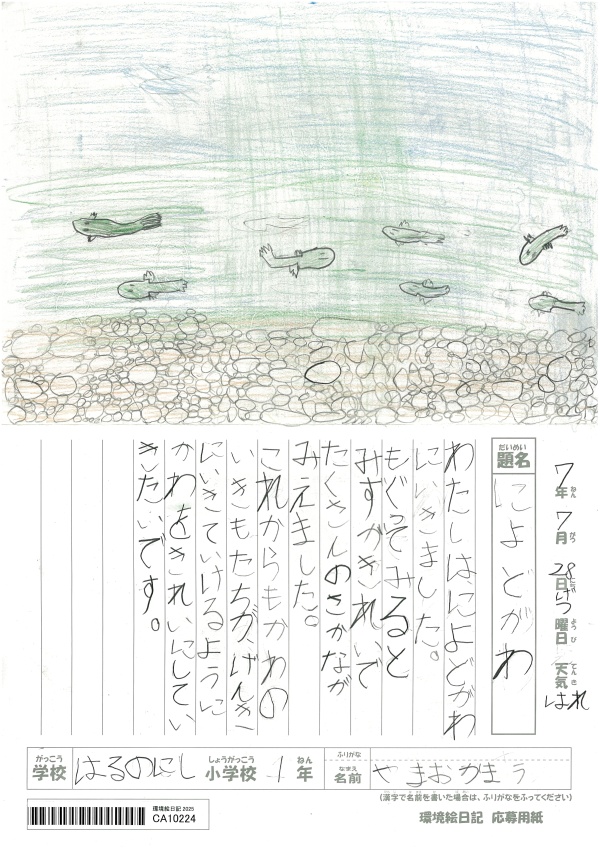 7年ねん 7月がつ 28日にち げつ曜日ようび 天気てんき はれ
だいめい
題名 によどがわ
わたしはによどがわ
にいきました。
もぐってみると
みずがきれいで
たくさんのさかなが
みえました。
これからもかわの
いきもたちが、げんき
にいきていけるように
かわをきれいにしてい
きたいです。
がっこう しょうがっこう ねん ふりがな
学校 はるのにし 小学校 1年 なまえ 名前 やまおかまう
(漢字で名前を書いた場合は、ふりがなをふってください)
環境絵日記 応募用紙
環境絵日記 2025
CA10224